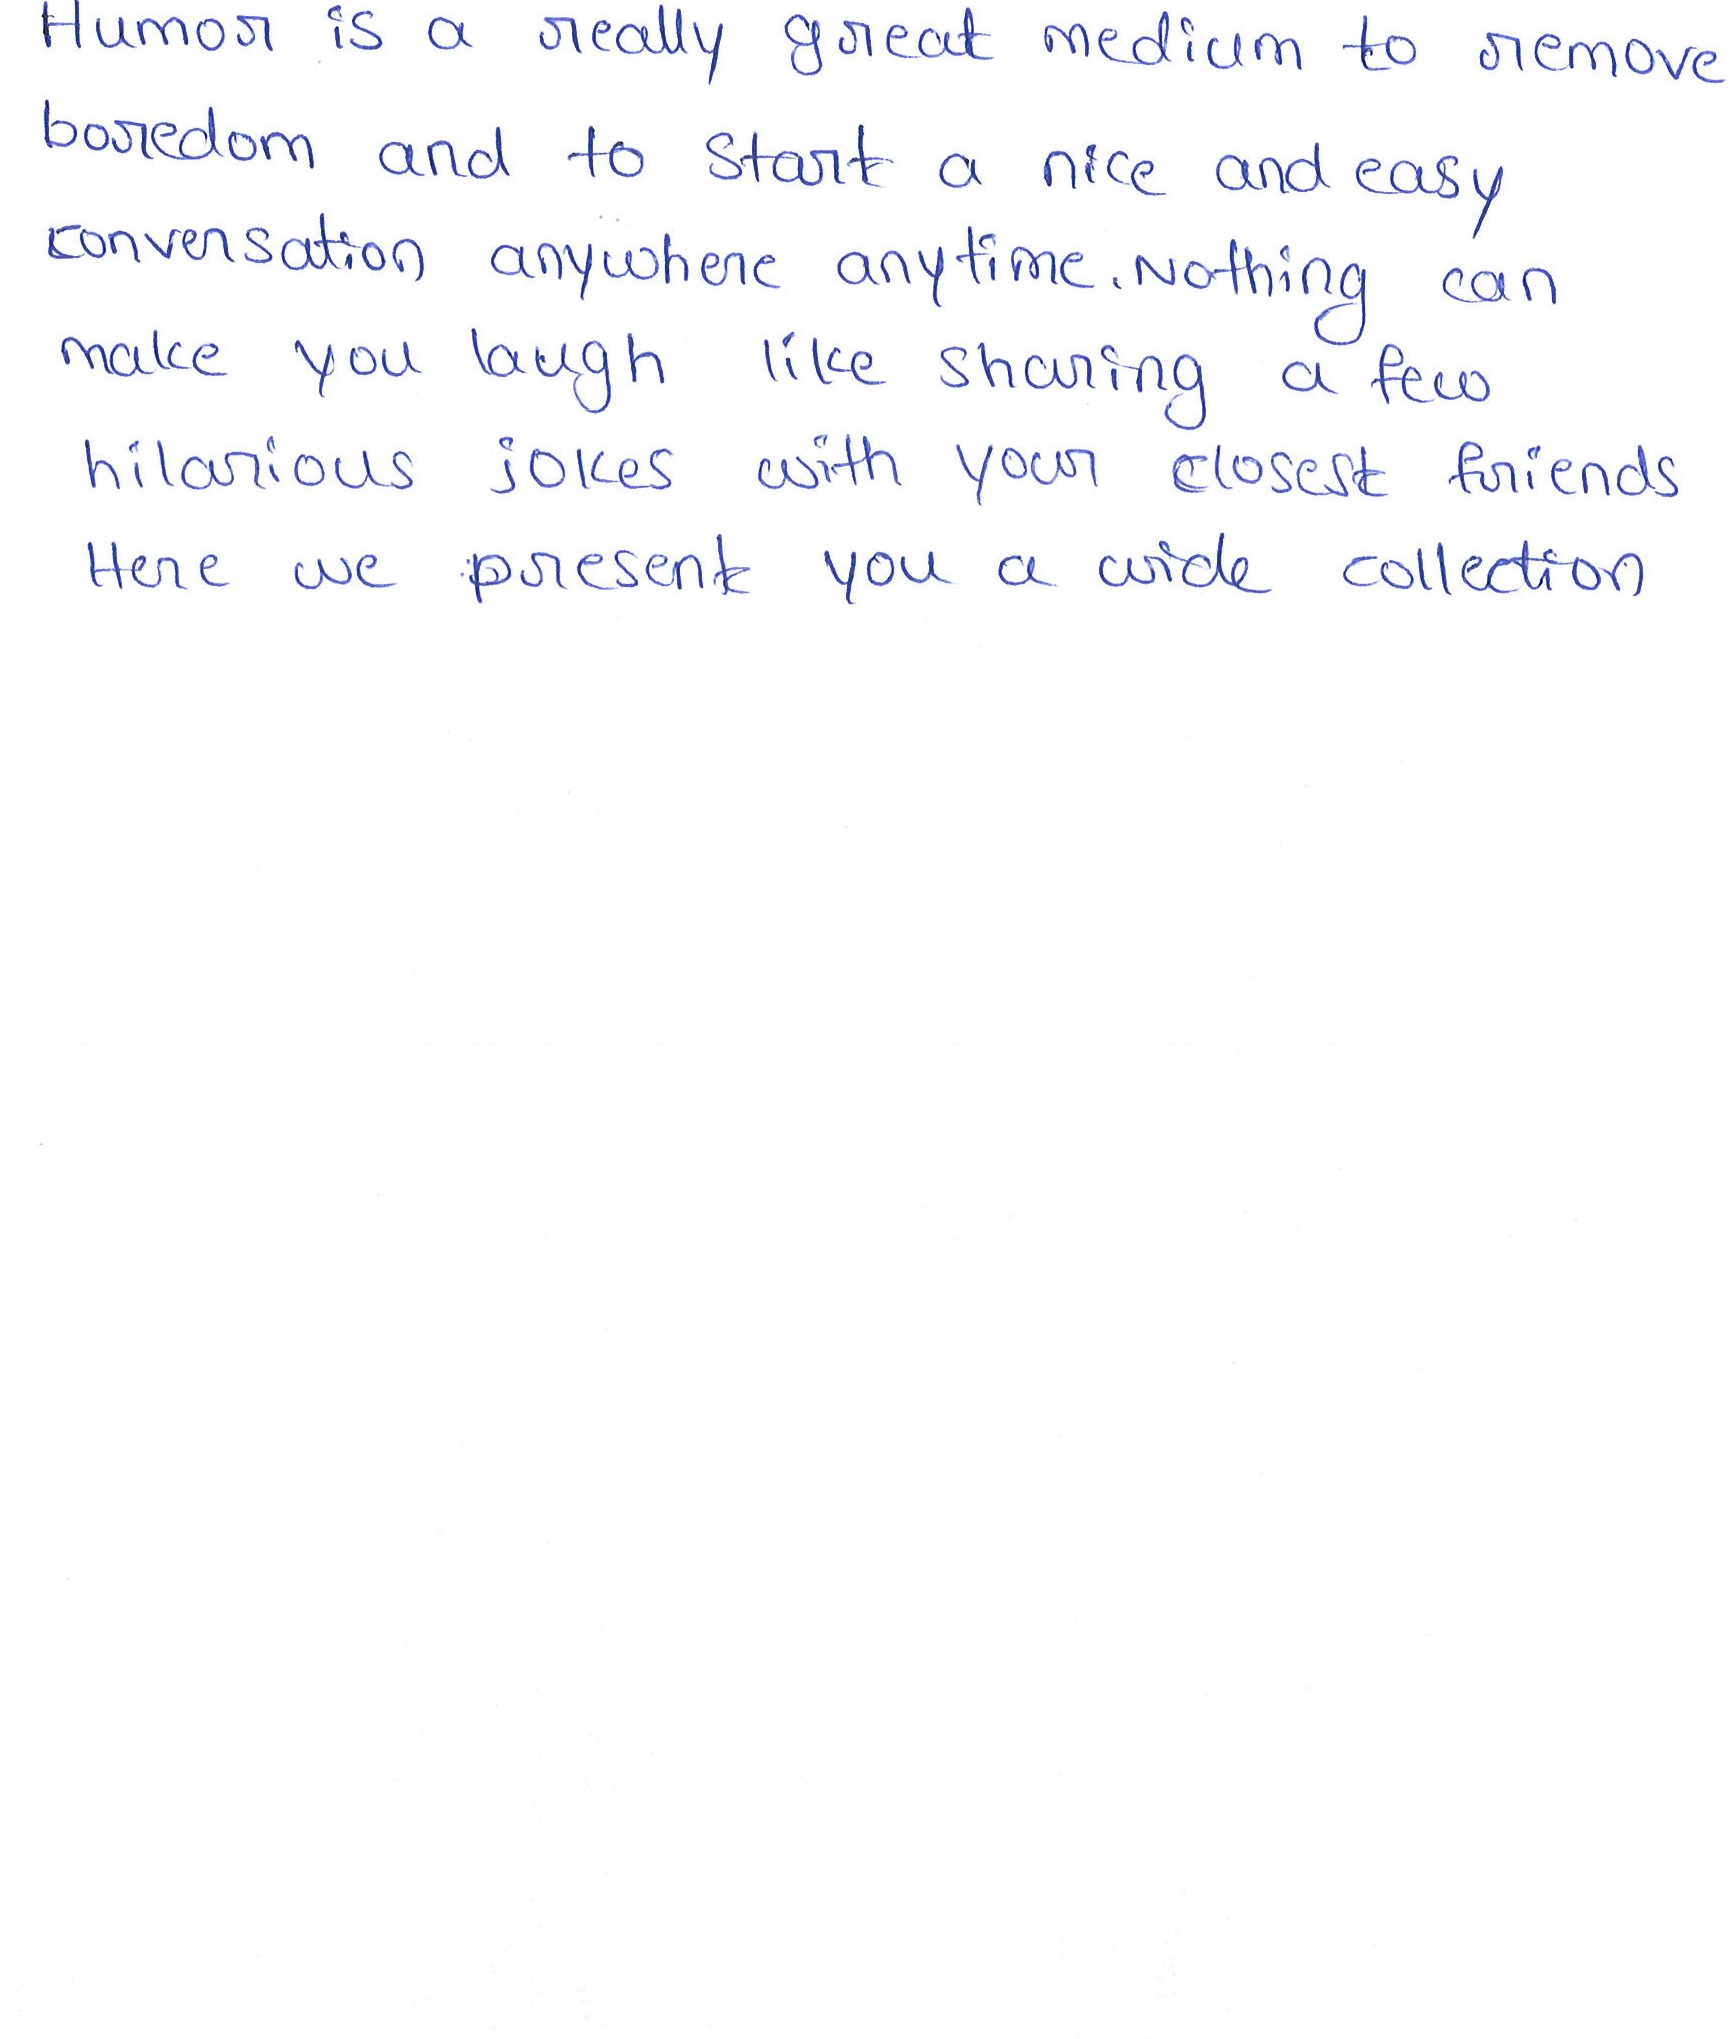 Humor is a really great medium to remove
boredom and to start a nice and easy
conversation anywhere anytime. Nothing can
make you laugh like sharing a few
hilarious jokes with your closest friends
Here we present you a wide collection